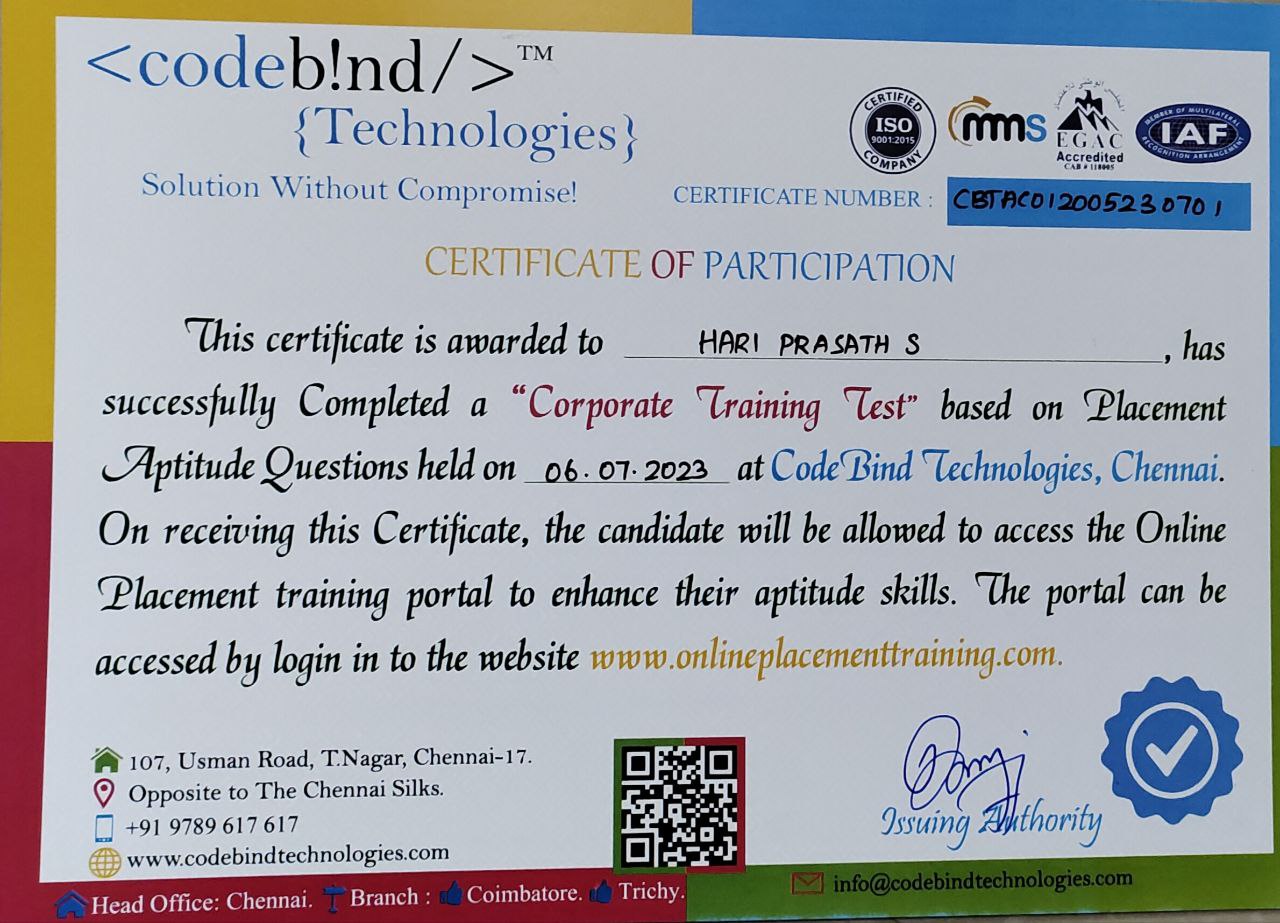 <codeb!nd/>™
{Technologies}
Solution Without Compromise!
CERTIFIED
ISO
9001:2015
COMPANY
mms
EGAC
Accredited
CAB # 118005
MEMBER OF MULTILATERAL
IAF
RECOGNITION ARRANGEMENT
CERTIFICATE NUMBER : CBTAC012005230701
CERTIFICATE OF PARTICIPATION
This certificate is awarded to HARI PRASATH S, has
successfully Completed a “Corporate Training Test” based on Placement
Aptitude Questions held on 06.07.2023 at CodeBind Technologies, Chennai.
On receiving this Certificate, the candidate will be allowed to access the Online
Placement training portal to enhance their aptitude skills. The portal can be
accessed by login in to the website www.onlineplacementtraining.com.
107, Usman Road, T.Nagar, Chennai-17.
Opposite to The Chennai Silks.
+91 9789 617 617
www.codebindtechnologies.com
Issuing Authority
Head Office: Chennai. Branch : Coimbatore. Trichy.
info@codebindtechnologies.com